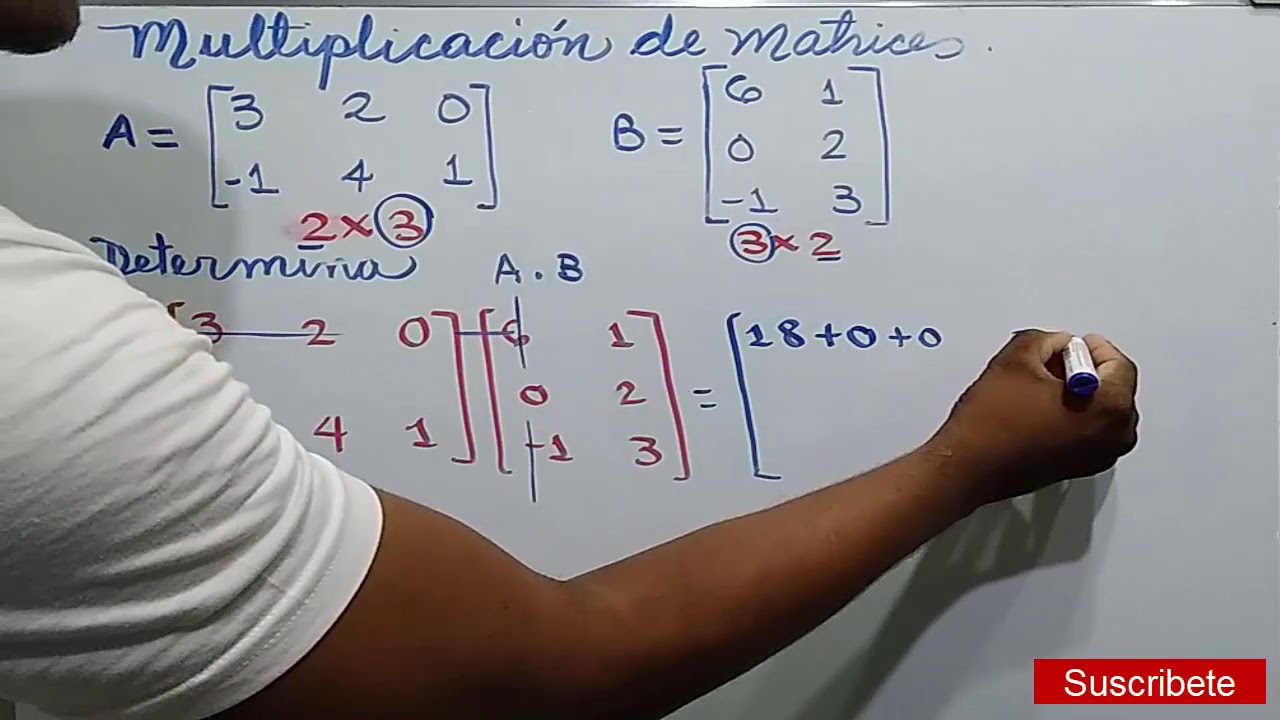 Multiplicación de matrices.
A = [3 2 0] B = [6 1]
[-1 4 1] [0 2]
[-1 3]
2×3 3×2
Determina A . B
[3 2 0] [6 1] = [18+0+0
0 2
4 1] [-1 3]
Suscribete